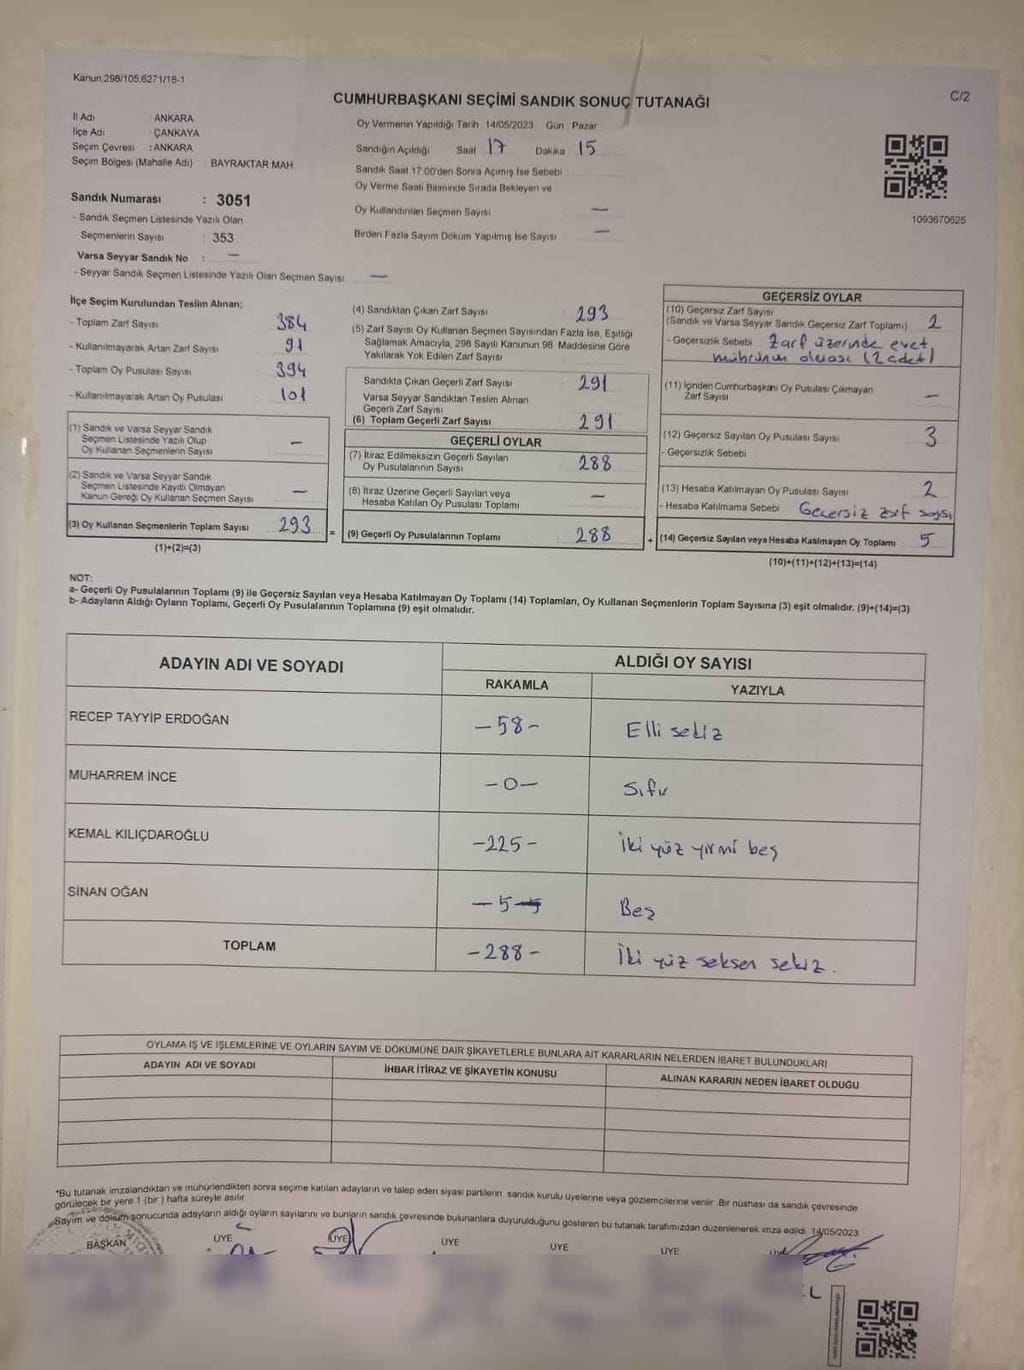 Kanun:298/105,6271/18-1
C/2
CUMHURBAŞKANI SEÇİMİ SANDIK SONUÇ TUTANAĞI
İl Adı ANKARA
İlçe Adı : ÇANKAYA
Seçim Çevresi : ANKARA
Seçim Bölgesi (Mahalle Adı) : BAYRAKTAR MAH
Sandık Numarası : 3051
- Sandık Seçmen Listesinde Yazılı Olan
Seçmenlerin Sayısı : 353
Varsa Seyyar Sandık No : —
- Seyyar Sandık Seçmen Listesinde Yazılı Olan Seçmen Sayısı —
Oy Vermenin Yapıldığı Tarih 14/05/2023 Gün : Pazar
Sandığın Açıldığı Saat 17 Dakika : 15
Sandık Saat 17.00'den Sonra Açımış İse Sebebi
Oy Verme Saati Bitiminde Sırada Bekleyen ve
Oy Kullandırılan Seçmen Sayısı —
Birden Fazla Sayım Döküm Yapılmış İse Sayısı —
1093670625
İlçe Seçim Kurulundan Teslim Alınan;
- Toplam Zarf Sayısı 384
- Kullanılmayarak Artan Zarf Sayısı 91
- Toplam Oy Pusulası Sayısı 394
- Kullanılmayarak Artan Oy Pusulası 101
(1) Sandık ve Varsa Seyyar Sandık
Seçmen Listesinde Yazılı Olup
Oy Kullanan Seçmenlerin Sayısı —
(2) Sandık ve Varsa Seyyar Sandık
Seçmen Listesinde Kayıtlı Olmayan
Kanun Gereği Oy Kullanan Seçmen Sayısı —
(3) Oy Kullanan Seçmenlerin Toplam Sayısı 293 =
(1)+(2)=(3)
(4) Sandıktan Çıkan Zarf Sayısı 293
(5) Zarf Sayısı Oy Kullanan Seçmen Sayısından Fazla İse, Eşitliği
Sağlamak Amacıyla, 298 Sayılı Kanunun 98. Maddesine Göre
Yakılarak Yok Edilen Zarf Sayısı
Sandıkta Çıkan Geçerli Zarf Sayısı 291
Varsa Seyyar Sandıktan Teslim Alınan
Geçerli Zarf Sayısı
(6) Toplam Geçerli Zarf Sayısı 291
GEÇERLİ OYLAR
(7) İtiraz Edilmeksizin Geçerli Sayılan
Oy Pusulalarının Sayısı 288
(8) İtiraz Üzerine Geçerli Sayılan veya
Hesaba Katılan Oy Pusulası Toplamı —
(9) Geçerli Oy Pusulalarının Toplamı 288 +
GEÇERSİZ OYLAR
(10) Geçersiz Zarf Sayısı
(Sandık ve Varsa Seyyar Sandık Geçersiz Zarf Toplamı) 2
- Geçersizlik Sebebi : Zarf üzerinde evet
mührünün olması (2 adet)
(11) İçinden Cumhurbaşkanı Oy Pusulası Çıkmayan
Zarf Sayısı —
(12) Geçersiz Sayılan Oy Pusulası Sayısı 3
- Geçersizlik Sebebi
(13) Hesaba Katılmayan Oy Pusulası Sayısı 2
- Hesaba Katılmama Sebebi Geçersiz zarf sayısı
(14) Geçersiz Sayılan veya Hesaba Katılmayan Oy Toplamı 5
(10)+(11)+(12)+(13)=(14)
NOT:
a- Geçerli Oy Pusulalarının Toplamı (9) ile Geçersiz Sayılan veya Hesaba Katılmayan Oy Toplamı (14) Toplamları, Oy Kullanan Seçmenlerin Toplam Sayısına (3) eşit olmalıdır. (9)+(14)=(3)
b- Adayların Aldığı Oyların Toplamı, Geçerli Oy Pusulalarının Toplamına (9) eşit olmalıdır.
ADAYIN ADI VE SOYADI ALDIĞI OY SAYISI
RAKAMLA YAZIYLA
RECEP TAYYİP ERDOĞAN -58- Elli sekiz
MUHARREM İNCE -0- Sıfır
KEMAL KILIÇDAROĞLU -225- İki yüz yirmi beş
SİNAN OĞAN -5- Beş
TOPLAM -288- İki yüz seksen sekiz.
OYLAMA İŞ VE İŞLEMLERİNE VE OYLARIN SAYIM VE DÖKÜMÜNE DAİR ŞİKAYETLERLE BUNLARA AİT KARARLARIN NELERDEN İBARET BULUNDUKLARI
ADAYIN ADI VE SOYADI İHBAR İTİRAZ VE ŞİKAYETİN KONUSU ALINAN KARARIN NEDEN İBARET OLDUĞU
*Bu tutanak imzalandıktan ve mühürlendikten sonra seçime katılan adayların ve talep eden siyasi partilerin sandık kurulu üyelerine veya gözlemcilerine verilir. Bir nüshası da sandık çevresinde
görülecek bir yere 1 (bir) hafta süreyle asılır.
Sayım ve döküm sonucunda adayların aldığı oyların sayılarını ve bunların sandık çevresinde bulunanlara duyurulduğunu gösteren bu tutanak tarafımızdan düzenlenerek imza edildi. 14/05/2023
BAŞKAN ÜYE ÜYE ÜYE ÜYE ÜYE